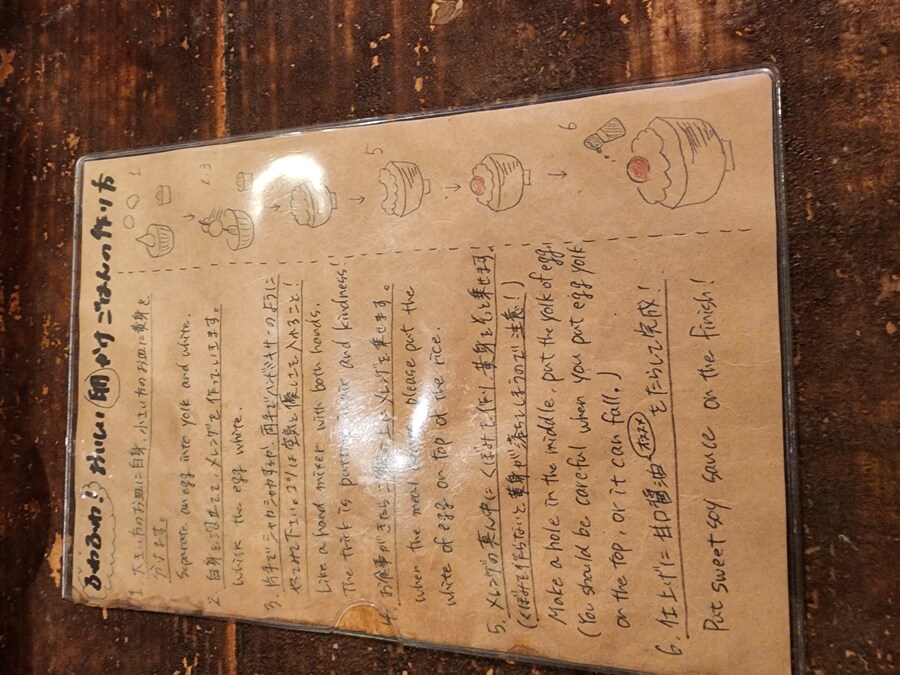 ふわふわ! おいしい 卵 かけ ごはんの 作り方
1. 大きい方のお皿に白身、小さい方のお皿に黄身を
分けます。
Separate an egg into yolk and white.
2. 白身を泡立てて、メレンゲを作っていきます。
Whisk the egg white.
3. 片手でシャカシャカするか、両手でハンドミキサーのように
やってみて下さい。コツは空気と優しさを入れること!
Like a hand mixer with both hands.
The trick is putting in air and kindness!
4. お食事がきたらご飯の上にメレンゲを乗せます。
when the meal please put the
white of egg on top of the rice.
5. メレンゲの真ん中にくぼみを作り、黄身をそっと乗せます。
(くぼみを作らないと黄身が落ちてしまうので注意!)
Make a hole in the middle, put the yolk of egg.
(You should be careful when you put egg yolk
on the top, or it can fall.)
6. 仕上げに 甘口醤油 オススメ をたらして完成!
Put sweet soy sauce on the finish!
1
2.3
5
6